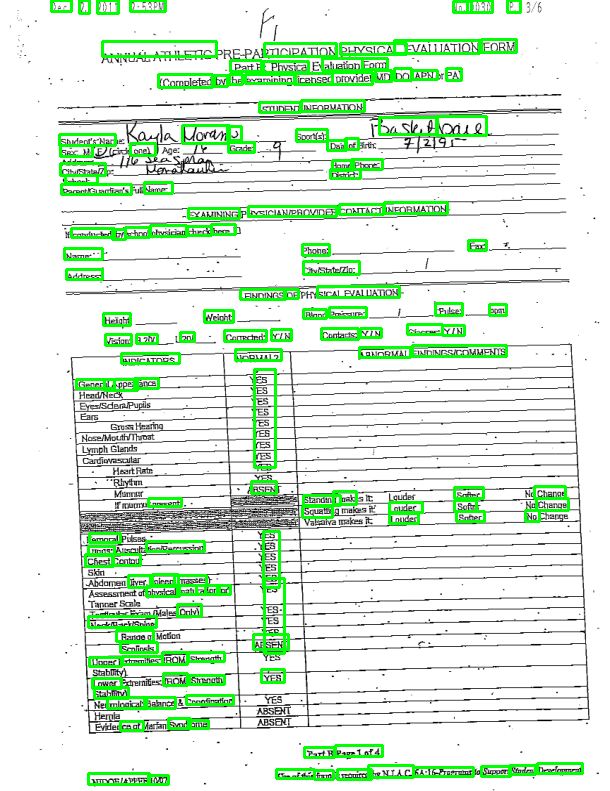 Dec. 7, 2011 2:53PM No. 1030 P. 3/6
ANNUAL ATHLETIC PRE-PARTICIPATION PHYSICAL EVALUATION FORM
Part B: Physical Evaluation Form
(Completed by the examining licensed provider MD, DO, APN or PA)
STUDENT INFORMATION
Student's Name: Kayla Sport(s):
Sex: M F (circle one) Age: 16 Grade: 9 Date of Birth: 7/2/95
Address: 116 Home Phone:
City/State/Zip: District:
School:
Parent/Guardian's Full Name:
EXAMINING PHYSICIAN/PROVIDER CONTACT INFORMATION
If conducted by school physician check here
Name: Phone: Fax:
Address: City/State/Zip:
FINDINGS OF PHYSICAL EVALUATION
Height: Weight: Blood Pressure: / Pulse: bpm
Vision: R 20/ L 20/ Corrected: Y / N Contacts: Y / N Glasses: Y / N
INDICATORS NORMAL? ABNORMAL FINDINGS/COMMENTS
General Appearance YES
Head/Neck YES
Eyes/Sclera/Pupils YES
Ears YES
Gross Hearing YES
Nose/Mouth/Throat YES
Lymph Glands YES
Cardiovascular YES
Heart Rate YES
Rhythm YES
Murmur ABSENT
If murmur present Standing makes it: Louder Softer No Change
Squatting makes it: Louder Softer No Change
Valsalva makes it: Louder Softer No Change
Femoral Pulses YES
Lungs: Auscultation/Percussion YES
Chest Contour YES
Skin YES
Abdomen (liver, spleen, masses) YES
Assessment of physical maturation or YES
Tanner Scale
Testicular Exam (Males Only) YES
Neck/Back/Spine YES
Range of Motion YES
Scoliosis ABSENT
Upper Extremities: (ROM, Strength, YES
Stability)
Lower Extremities: (ROM, Strength, YES
Stability)
Neurological: Balance & Coordination YES
Hernia ABSENT
Evidence of Marfan Syndrome ABSENT
Part B Page 1 of 4
NJDOE/APPEF 10/07 Use of this form is required by N.J.A.C. 6A:16-Programs to Support Student Development